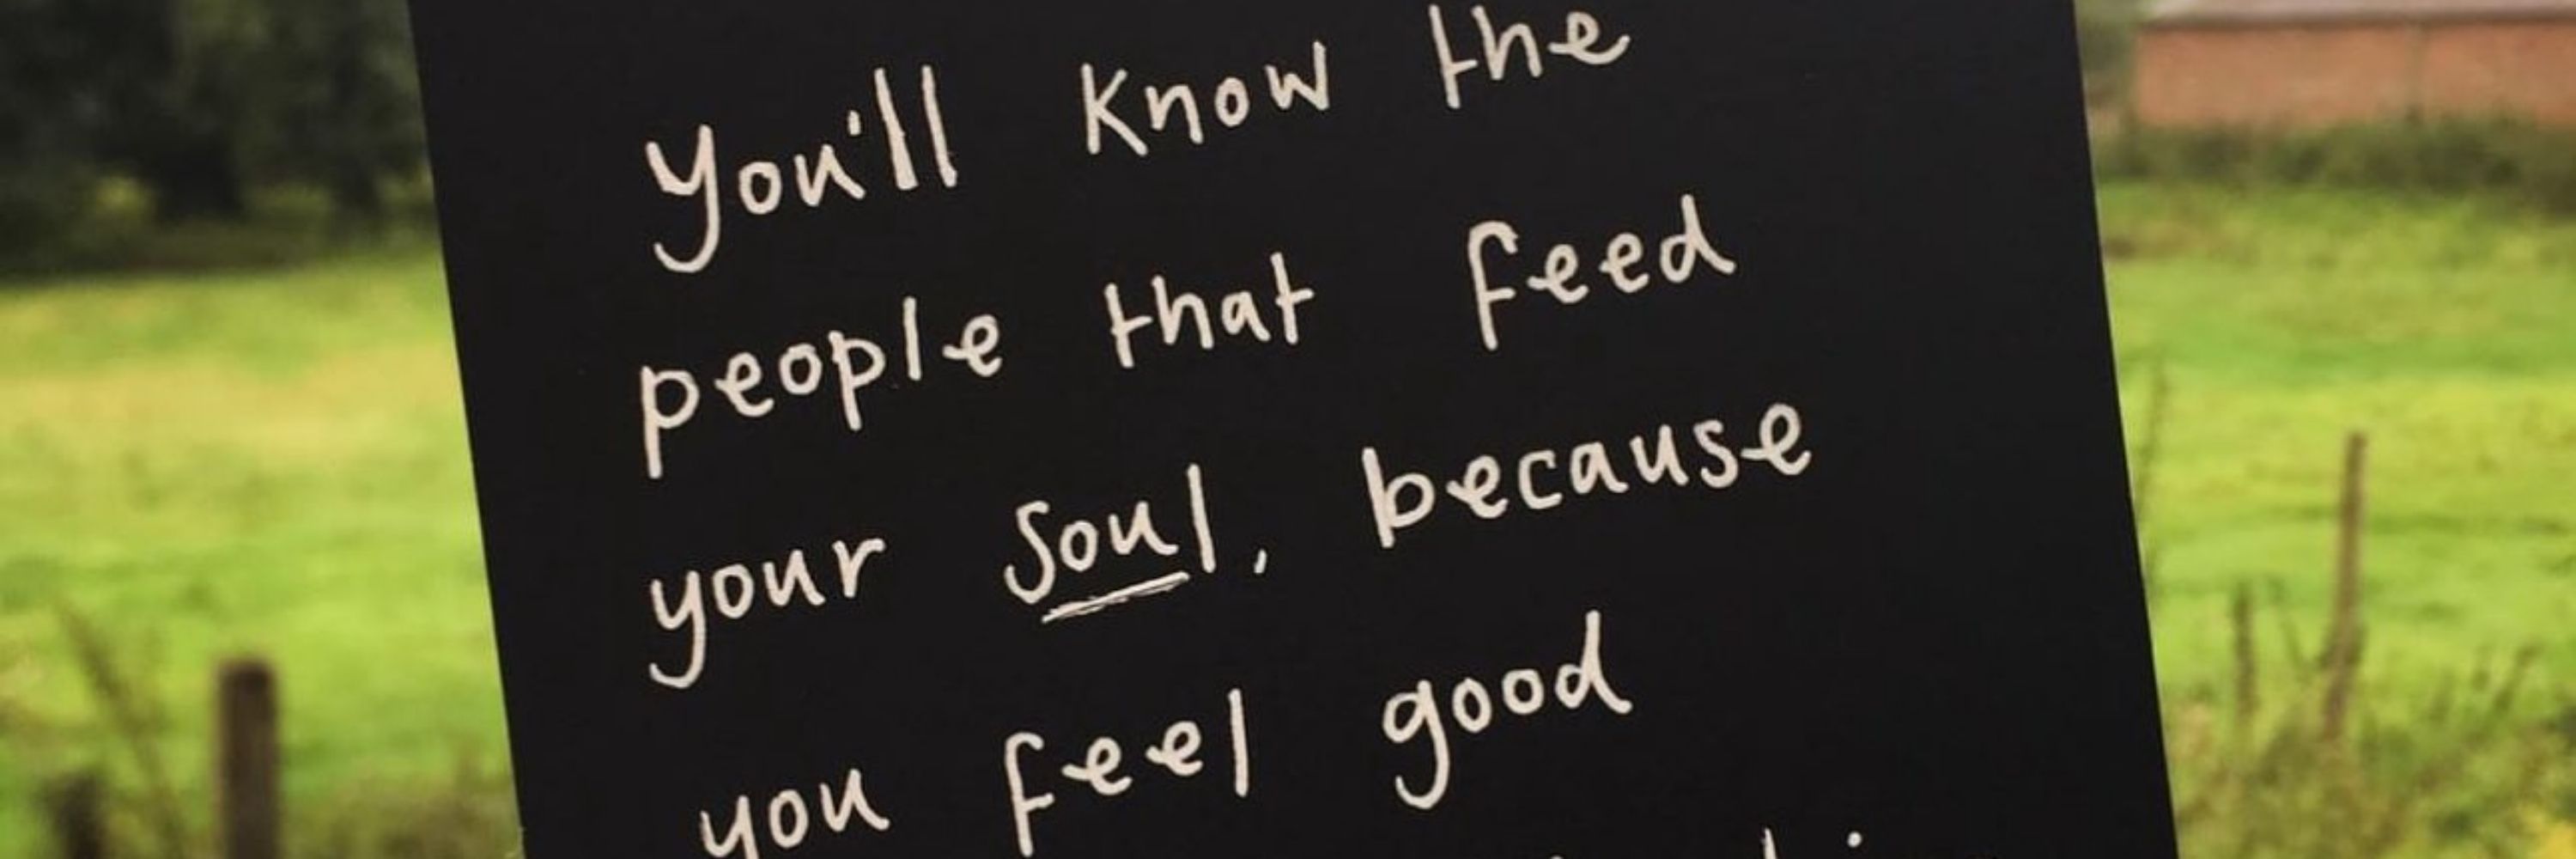 You'll know the
people that feed
your soul, because
you feel good